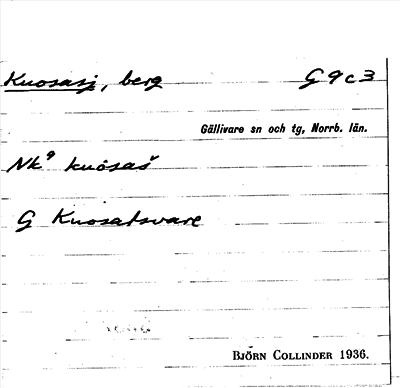 Kuosasj, berg G 9 c 3
Gällivare sn och tg, Norrb. län.
Nk⁹ kuosaš
G Kuosatsvare
BJÖRN COLLINDER 1936.